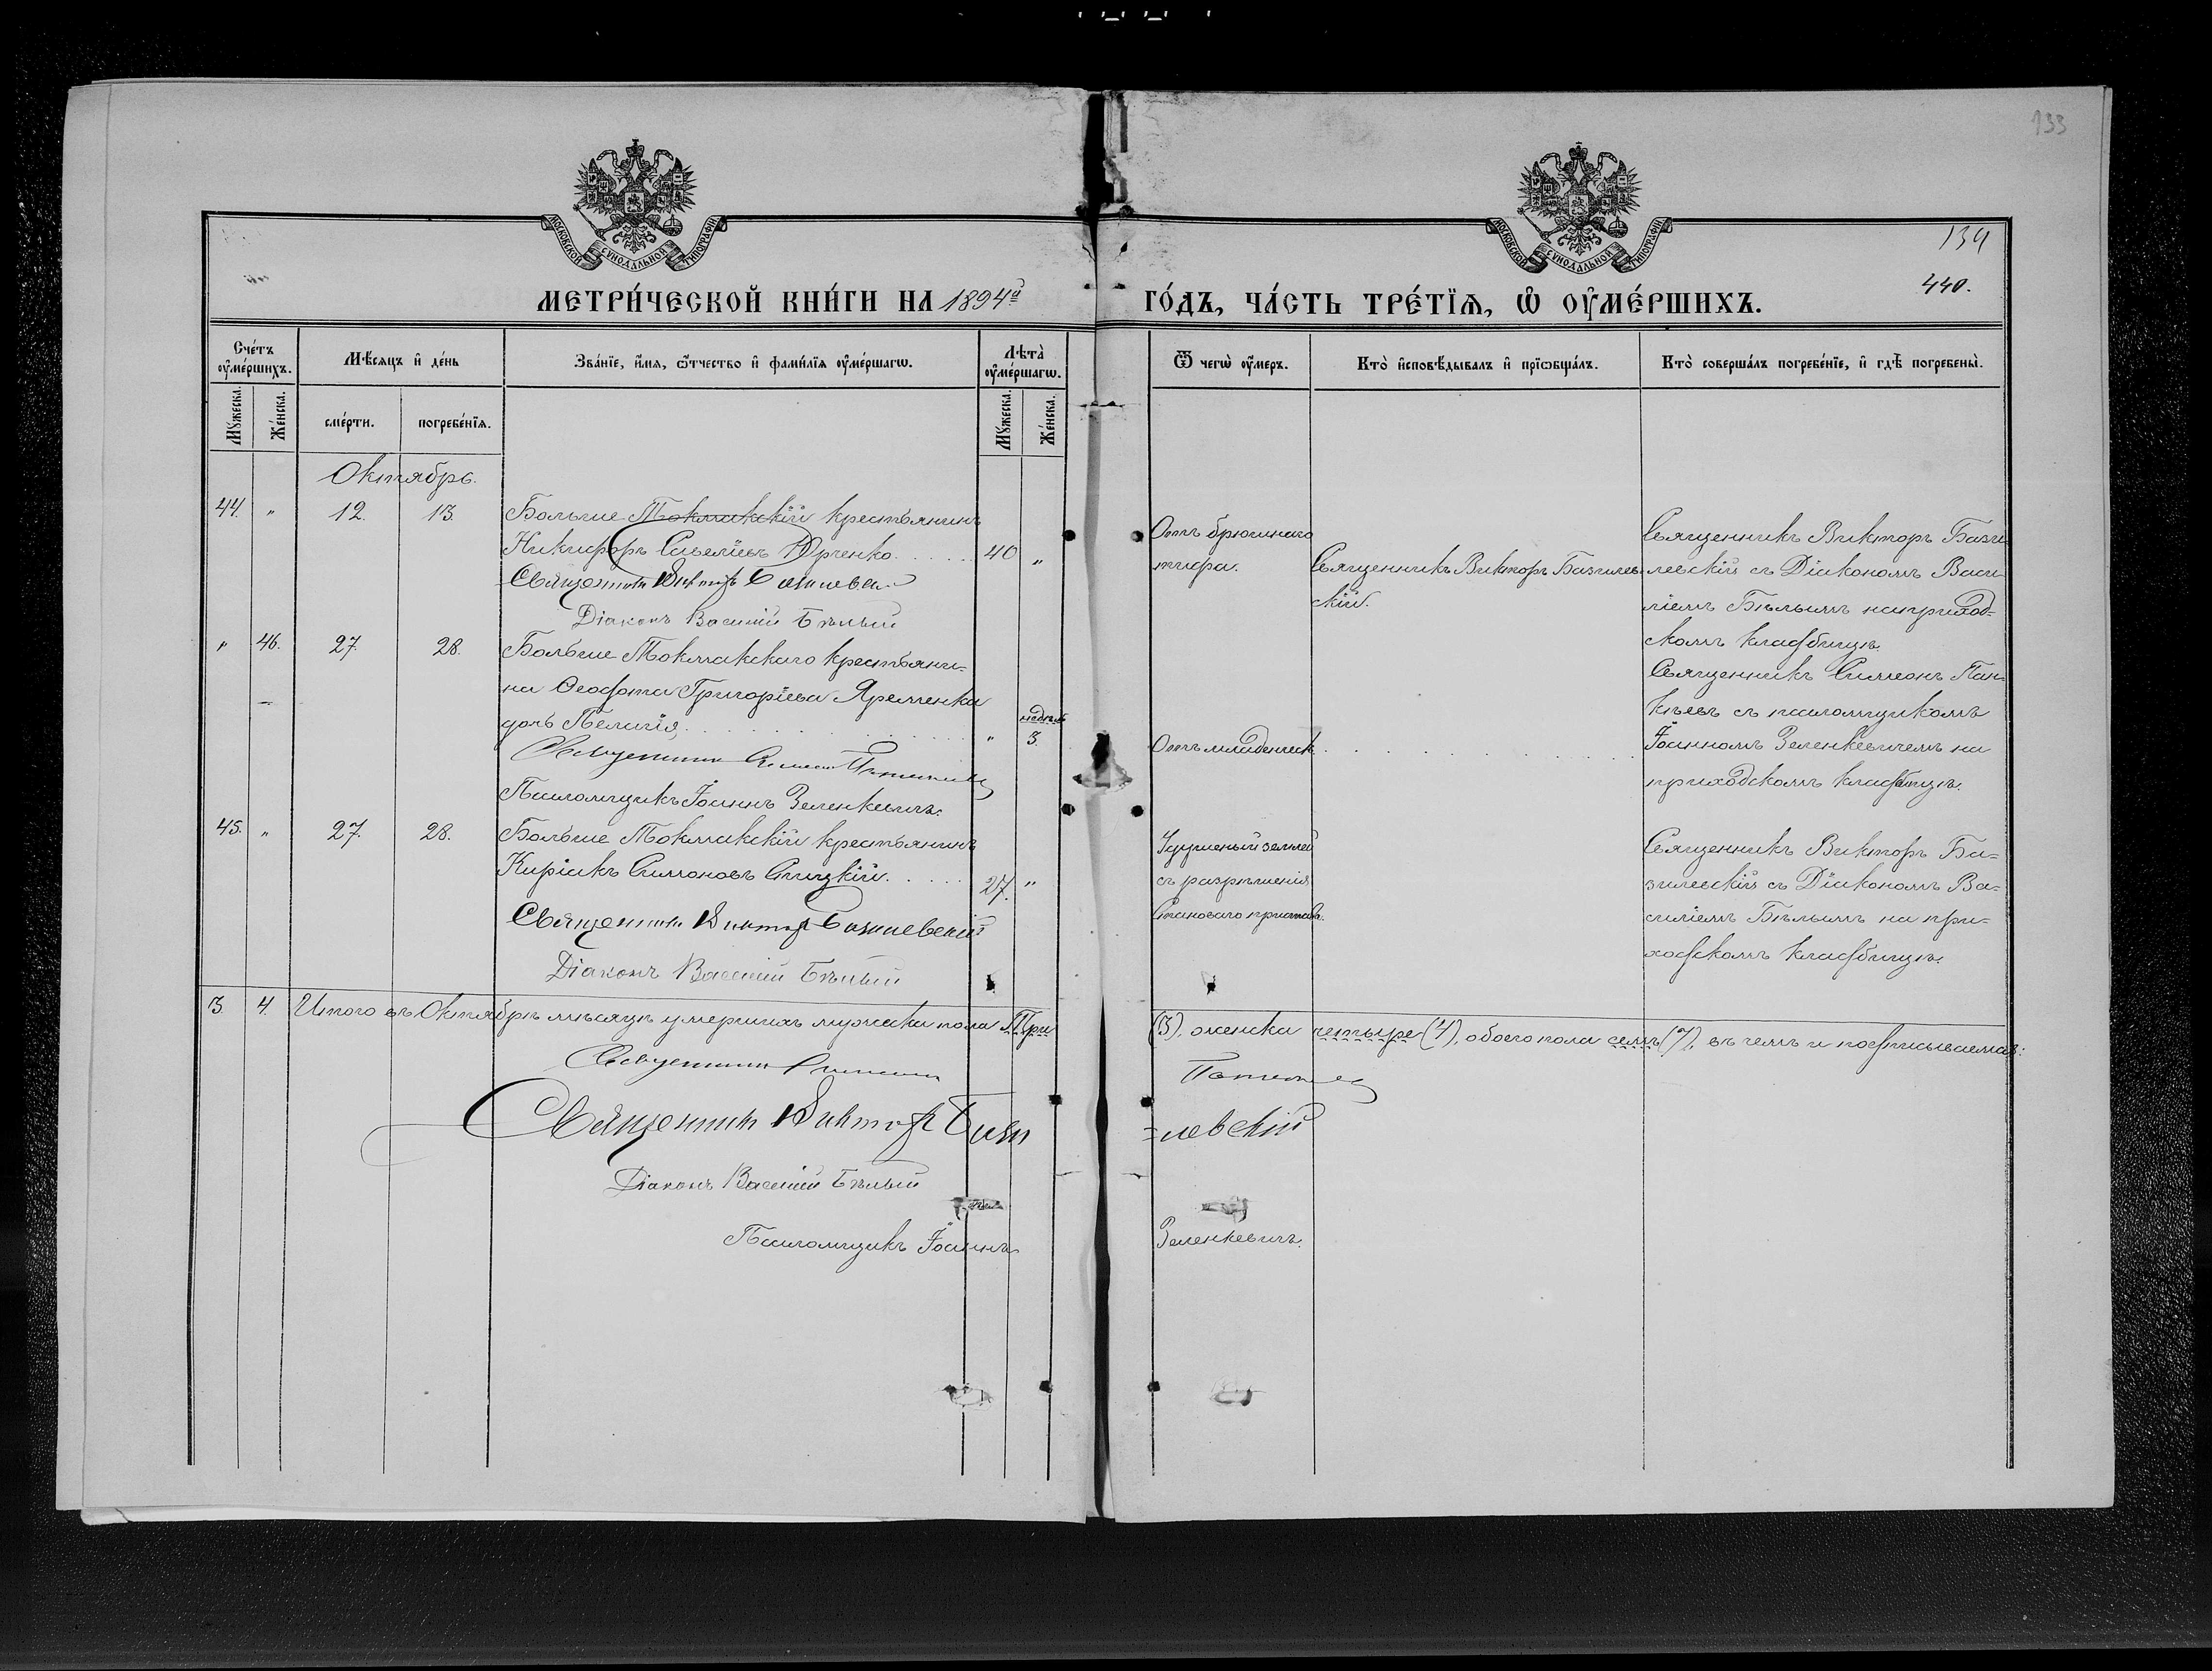 133
134
440.
МОСКОВСКОЙ СѴНОДАЛЬНОЙ ТИПОГРАФІИ
МОСКОВСКОЙ СѴНОДАЛЬНОЙ ТИПОГРАФІИ
МЕТРИ́ЧЕСКОЙ КНИ́ГИ НА 1894й ГО́ДЪ, ЧА́СТЬ ТРЕ́ТЇѦ, Ѡ҆ ОУ҆МЕ́РШИХЪ.
Сче́тъ оу҆ме́ршихъ.
Мѣ́сяцъ и҆ де́нь
Зва́нїе, и҆́мѧ, ѻ҆́тчество и҆ фами́лїѧ оу҆ме́ршагѡ.
Лѣта̀ оу҆ме́ршагѡ.
Ѿ чегѡ̀ оу҆́меръ.
Кто̀ и҆сповѣ́дывалъ и҆ прїѡбща́лъ.
Кто̀ соверша́лъ погребе́нїе, и҆ гдѣ̀ погребены̀.
Му́жеска.
Же́нска.
сме́рти.
погребе́нїѧ.
Му́жеска.
Же́нска.
Октябрь.
44. " 12. 13. Больше Токмакскій крестьянинъ
Никифоръ Савеліевъ Юрченко. . . . . 40 "
Священникъ Викторъ Базилевск
Діаконъ Василій Бѣлый
Отъ брюшнаго
тифа.
Священникъ Викторъ Базилев-
скій.
Священникъ Викторъ Бази-
левскій съ Діакономъ Васи-
ліемъ Бѣлымъ на приход-
скомъ кладбищѣ.
" 46. 27. 28. Больше Токмакскаго крестьяни-
на Ѳеодота Григоріева Яременка
дочь Пелагія. . . . . " недѣль 3.
Священникъ Симеонъ
Псаломщикъ Іоаннъ Зеленкевичъ.
Отъ младенческ. . . . .
Священникъ Симеонъ Пан-
кѣевъ съ псаломщикомъ
Іоанномъ Зеленкевичемъ на
приходскомъ кладбищѣ.
45. " 27. 28. Больше Токмакскій крестьянинъ
Киріакъ Симоновъ . . . . . 27. "
Священникъ Викторъ Базилевскій
Діаконъ Василій Бѣлый
землей
съ разрѣшенія
Становаго пристава.
Священникъ Викторъ Ба-
зилевскій съ Діакономъ Ва-
силіемъ Бѣлымъ на при-
ходскомъ кладбищѣ.
3. 4. Итого въ Октябрѣ мѣсяцѣ умершихъ мужеска пола Три (3), женска четыре (4), обоего пола семь (7), въ чемъ и подписываемся:
Священникъ Симеонъ
Священникъ Викторъ Бази
=левскій
Діаконъ Василій Бѣлый
Псаломщикъ Іоаннъ Зеленкевичъ.